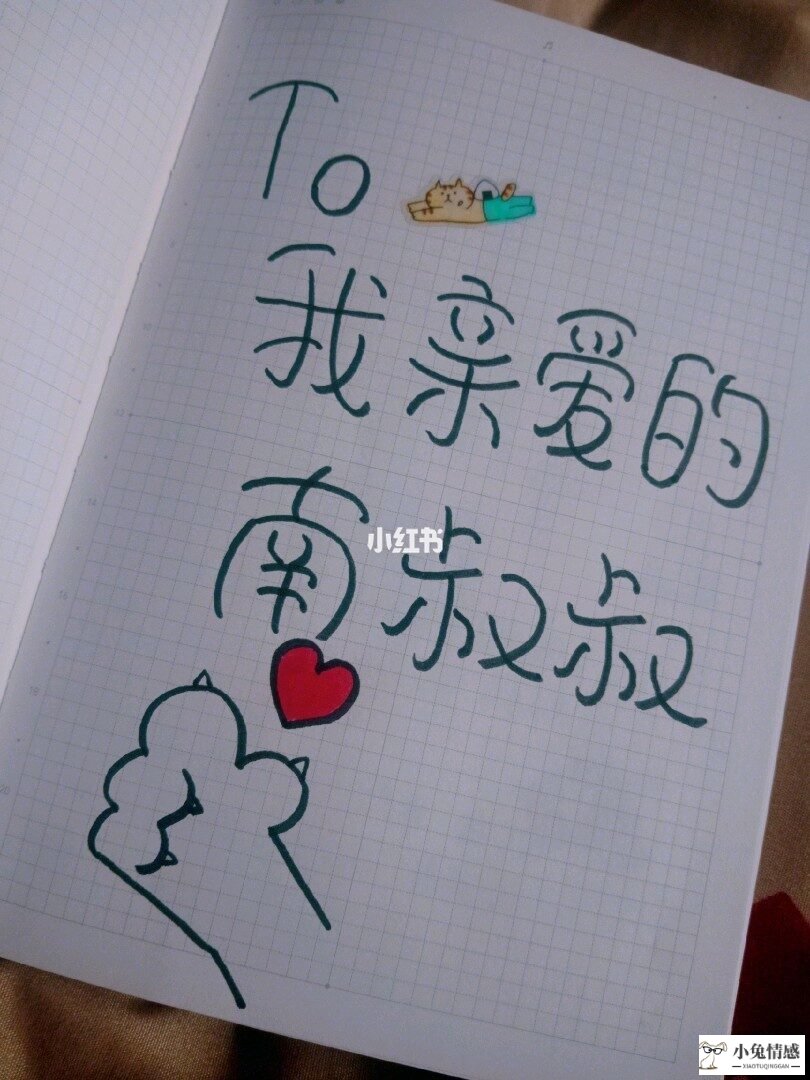 To
我亲爱的
南叔叔
小红书
小兔情感
XIAOTUQINGGAN